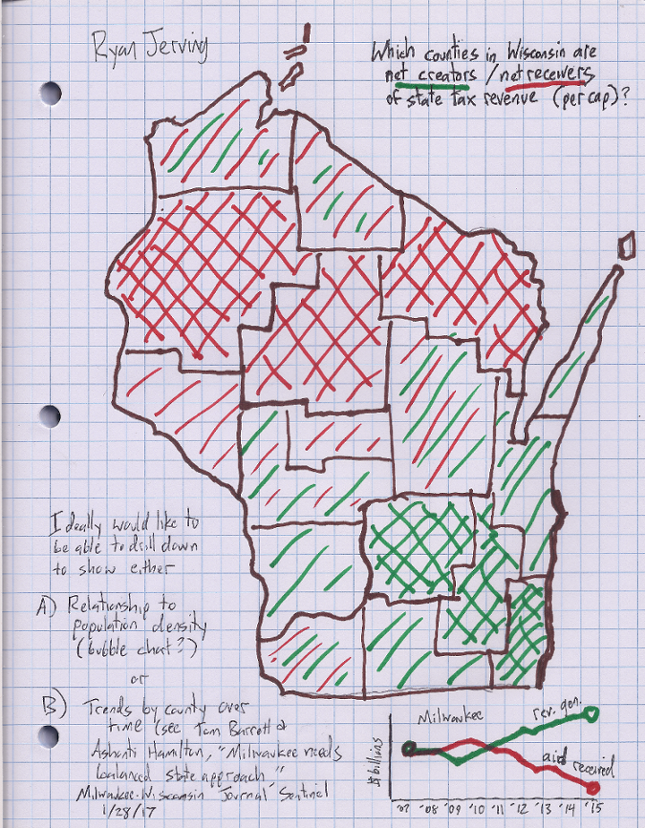 Ryan Jerving
Which counties in Wisconsin are
net creators / net receivers
of state tax revenue (per cap)?
I deally would like to
be able to drill down
to show either
A) Relationship to
population density
(bubble chart?)
or
B) Trends by county over
time (see Tom Barrett &
Ashanti Hamilton, "Milwaukee needs
balanced state approach"
Milwaukee-Wisconsin Journal Sentinel
1/28/17
Milwaukee
rev. gen.
aid received
$ billions
'08 '09 '10 '11 '12 '13 '14 '15